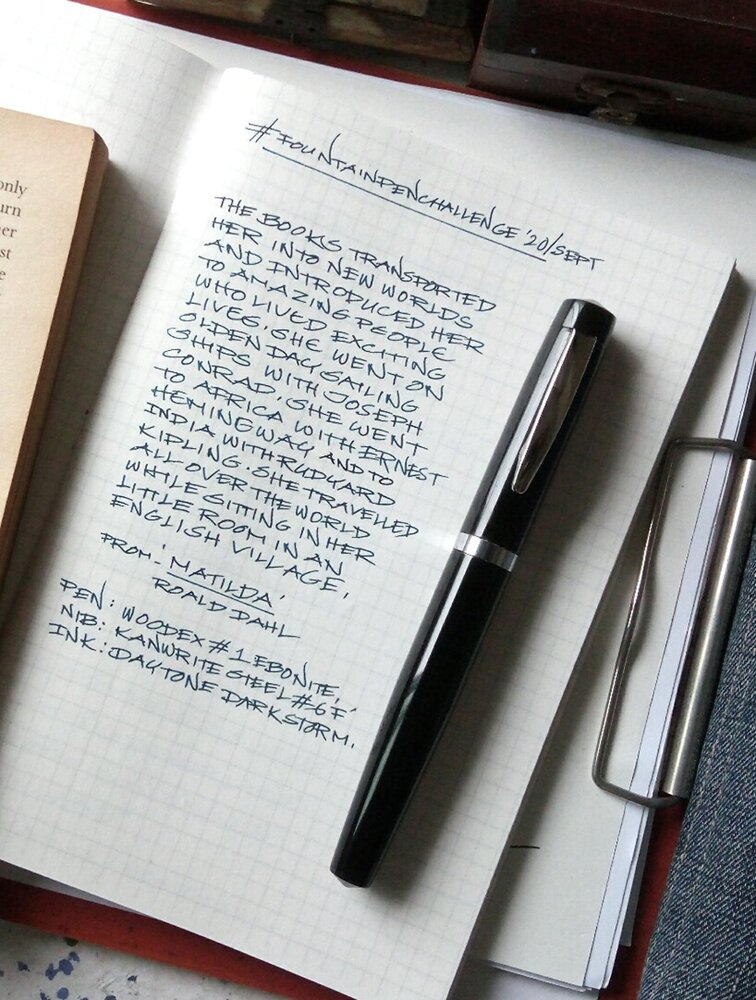 only
urn
her
st
e
#FOUNTAINPENCHALLENGE '20/SEPT
THE BOOKS TRANSPORTED
HER INTO NEW WORLDS
AND INTRODUCED HER
TO AMAZING PEOPLE
WHO LIVED EXCITING
LIVES. SHE WENT ON
OLDEN DAY SAILING
SHIPS WITH JOSEPH
CONRAD. SHE WENT
TO AFRICA WITH ERNEST
HEMINGWAY AND TO
INDIA WITH RUDYARD
KIPLING. SHE TRAVELLED
ALL OVER THE WORLD
WHILE SITTING IN HER
LITTLE ROOM IN AN
ENGLISH VILLAGE.
FROM- 'MATILDA'
ROALD DAHL
PEN: WOODEX #1 EBONITE,
NIB: KANWRITE STEEL #6 'F'
INK: DAYTONE DARKSTORM.